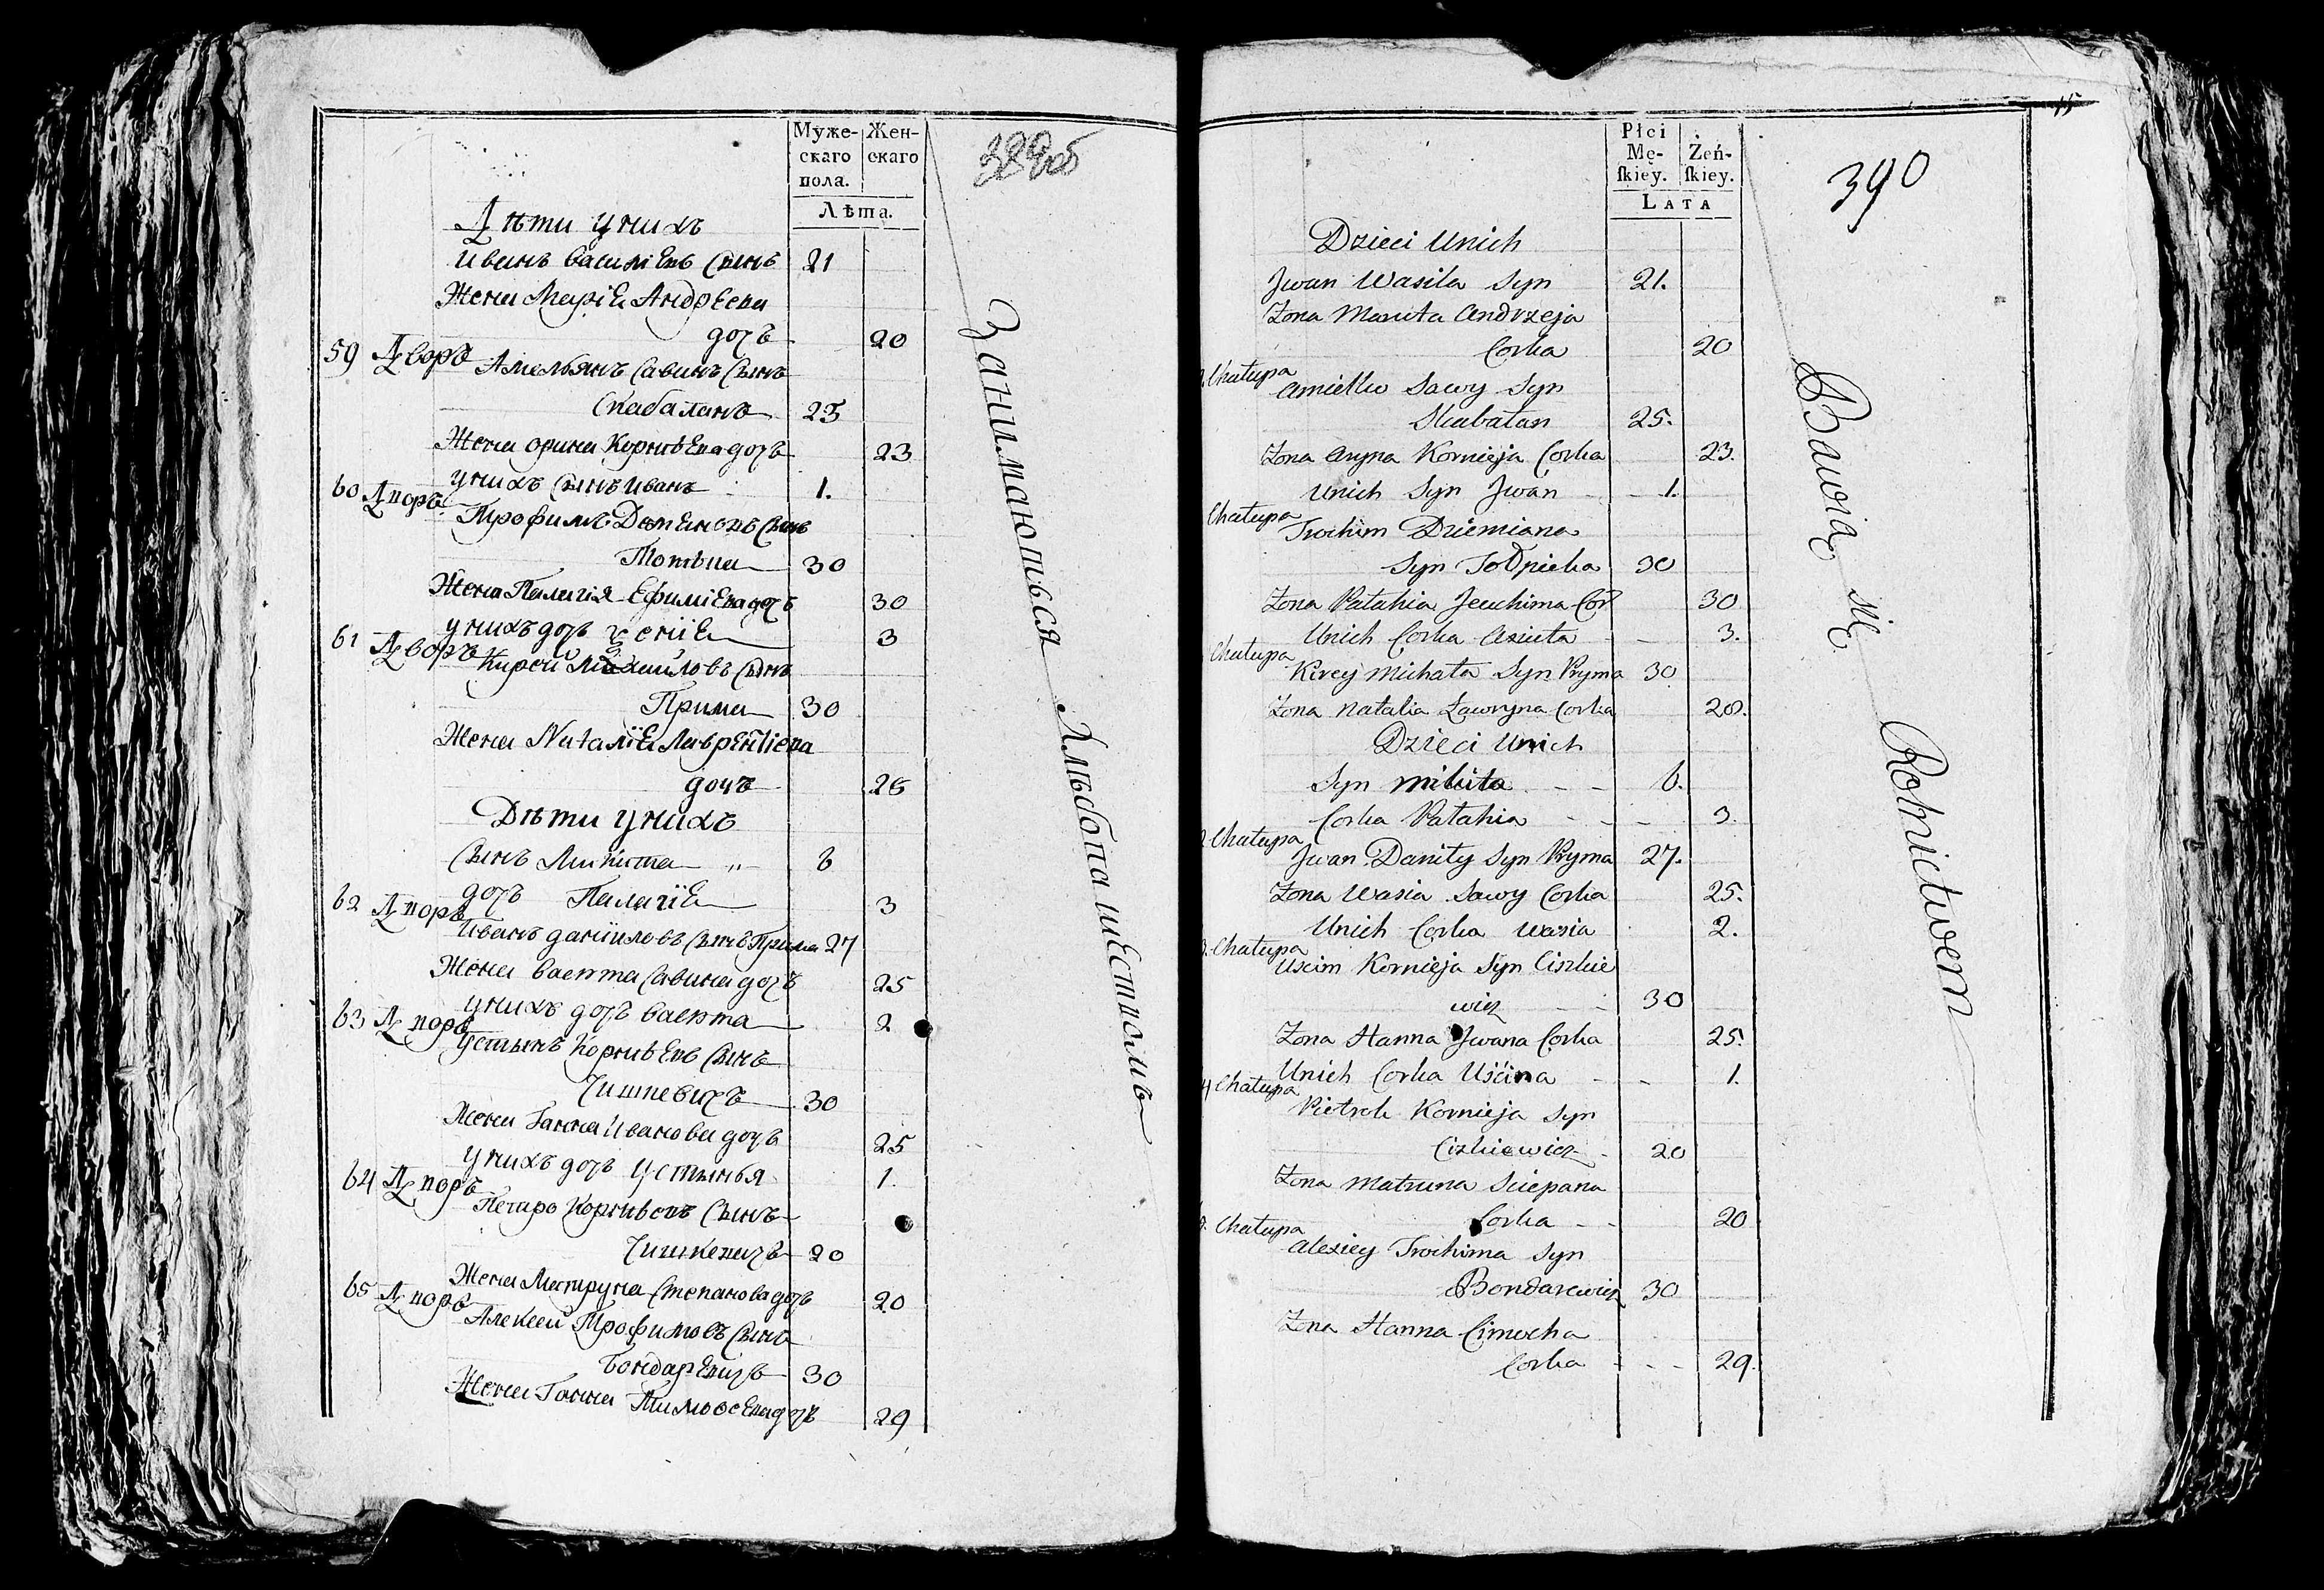 Муже-
скаго
пола.
Жен-
скаго
Лѣта.
389об
Дѣти унихъ
Иванъ василіевъ Сынъ 21
Жена Маріа Андреева
дочъ 20
59 Дворъ
Амельянъ Савинъ Сынъ
Скабаланъ 25
Жена орина Корнѣева дочъ 23
унихъ Сынъ Иванъ 1.
60 Дворъ
Трофимъ Деменовъ Сынъ
30
Жена Палагія Ефиміева дочъ 30
унихъ дочъ 3
61 Дворъ
Кирей Михайловъ Сынъ
Прима 30
Жена Наталіа Лаврентіева
дочъ
Дѣти унихъ
Сынъ Микита „ 6
дочъ Палагіа 3
62 Дворъ
Иванъ даніиловъ Сынъ Прима 27
Жена Савина дочъ 25
унихъ дочъ 2
63 Дворъ
Устынъ Корнѣевъ Сынъ
Чишкевичъ 30
Жена Ганна Иванова дочъ 25
унихъ дочъ Устынья 1.
64 Дворъ
Петро Корнѣевъ Сынъ
Чишкевичъ 20
Жена Матруна Степанова дочъ 20
65 Дворъ
Алексей Трофимовъ Сынъ
Бондаревичъ 30
Жена Ганна Тимофеева дочъ 29
Занимаються Хлѣбопашествомъ
Płci
Mę-
ſkiey.
Żeń-
ſkiey.
LATA
390
Dzieci Unich
Jwan Wasila Syn 21.
Zona Maruta Andrzeja
Corka 20
Chałupa
Amielko Sawy Syn
Skabałan 25.
Zona Aryna Kornieja Corka 23.
Unich Syn Jwan 1.
Chałupa
Trochim Dziemiana
Syn 30
Zona Pałahia Jeuchima Cor 30
Unich Corka 3.
Chałupa
Kirey Michała Syn Pryma 30
Zona Natalia Ławryna Corka
Dzieci Unich
Syn Mikita 6.
Corka Pałahia 3.
Chałupa
Jwan Daniły Syn Pryma 27.
Zona Wasia Sawy Corka 25.
Unich Corka Wasia 2.
Chałupa
Uscim Kornieja Syn Ciszkie
wicz 30
Zona Hanna Jwana Corka 25.
Unich Corka Uścina 1.
4 Chałupa
Pietruk Kornieja Syn
Ciszkiewicz 20
Zona Matruna Sciepana
Corka 20
Chałupa
Alexiey Trochima Syn
Bondarewicz 30
Zona Hanna Cimocha
Corka 29.
Bawią się Rolnictwem